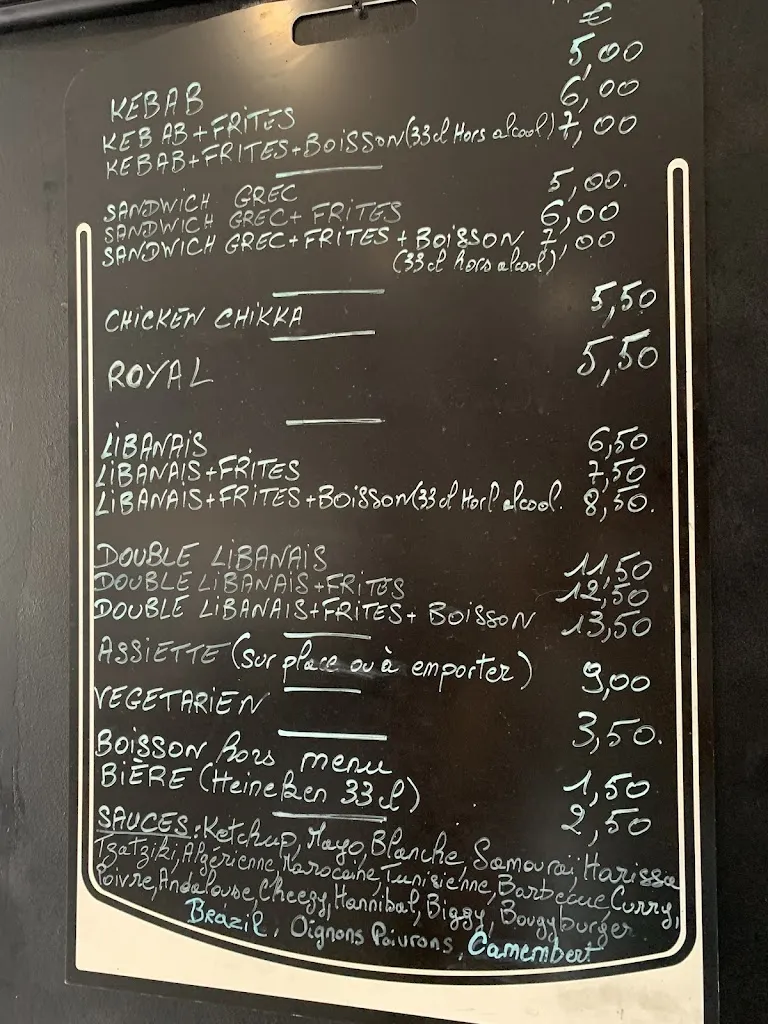 €
KEBAB 5,00
KEBAB+FRITES 6,00
KEBAB+FRITES+BOISSON(33cl Hors alcool) 7,00
SANDWICH GREC 5,00.
SANDWICH GREC+FRITES 6,00
SANDWICH GREC+FRITES+BOISSON 7,00
(33cl hors alcool)
CHICKEN CHIKKA 5,50
ROYAL 5,50
LIBANAIS 6,50
LIBANAIS+FRITES 7,50
LIBANAIS+FRITES+BOISSON(33cl Hors alcool. 8,50.
DOUBLE LIBANAIS 11,50
DOUBLE LIBANAIS+FRITES 12,50
DOUBLE LIBANAIS+FRITES+BOISSON 13,50
ASSIETTE (sur place ou à emporter) 9,00
VEGETARIEN 3,50.
BOISSON hors menu 1,50
BIÈRE (Heineken 33cl) 2,50
SAUCES: Ketchup, Mayo, Blanche, Samouraï, Harissa
Tzatziki, Algérienne, Marocaine, Tunisienne, Barbecue, Curry,
Poivre, Andalouse, Cheezy, Hannibal, Biggy, Bougyburger
Brazil, Oignons Poivrons, Camembert